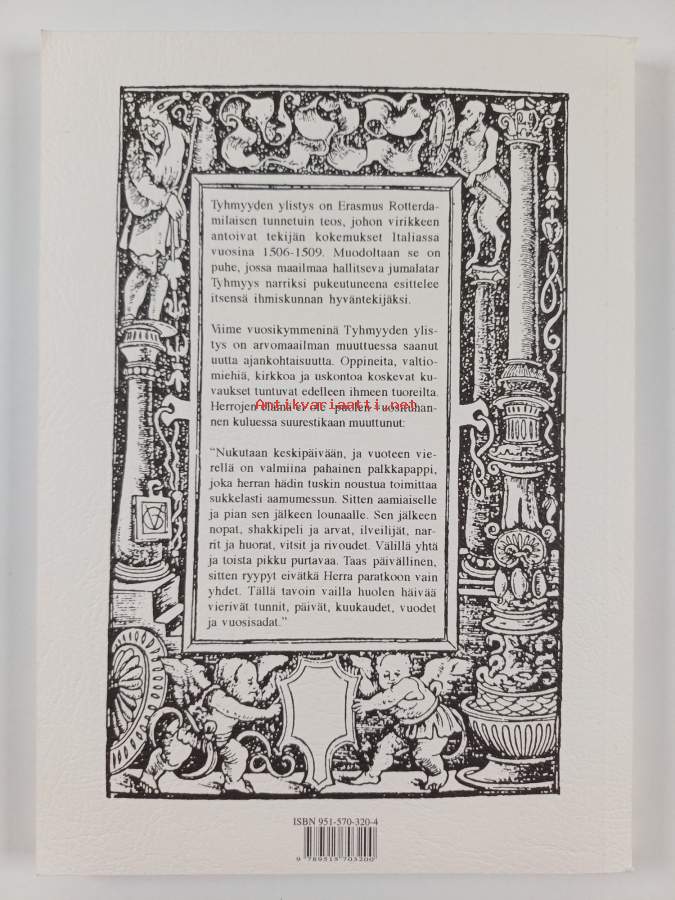 Tyhmyyden ylistys on Erasmus Rotterda-
milaisen tunnetuin teos, johon virikkeen
antoivat tekijän kokemukset Italiassa
vuosina 1506-1509. Muodoltaan se on
puhe, jossa maailmaa hallitseva jumalatar
Tyhmyys narriksi pukeutuneena esittelee
itsensä ihmiskunnan hyväntekijäksi.
Viime vuosikymmeninä Tyhmyyden ylis-
tys on arvomaailman muuttuessa saanut
uutta ajankohtaisuutta. Oppineita, valtio-
miehiä, kirkkoa ja uskontoa koskevat ku-
vaukset tuntuvat edelleen ihmeen tuoreilta.
Antikvariaatti.net
Herrojen elämä ei ole puolen vuosituhan-
nen kuluessa suurestikaan muuttunut:
“Nukutaan keskipäivään, ja vuoteen vie-
rellä on valmiina pahainen palkkapappi,
joka herran hädin tuskin noustua toimittaa
sukkelasti aamumessun. Sitten aamiaiselle
ja pian sen jälkeen lounaalle. Sen jälkeen
nopat, shakkipeli ja arvat, ilveilijät, nar-
rit ja huorat, vitsit ja rivoudet. Välillä yhtä
ja toista pikku purtavaa. Taas päivällinen,
sitten ryypyt eivätkä Herra paratkoon vain
yhdet. Tällä tavoin vailla huolen häivää
vierivät tunnit, päivät, kuukaudet, vuodet
ja vuosisadat.”
ISBN 951-570-320-4
9 789515 703200